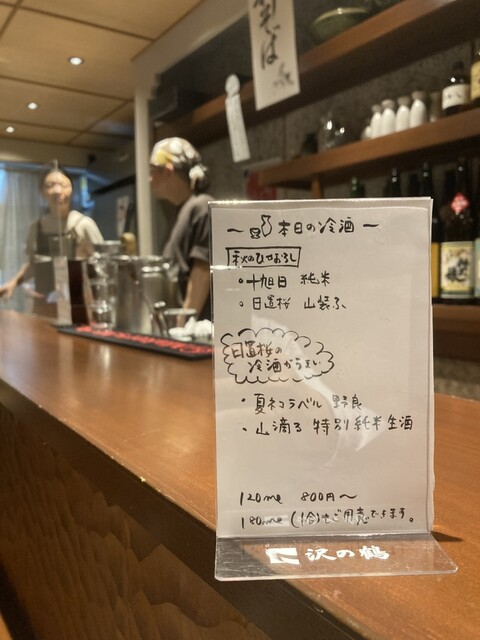 そば
〜 本日の冷酒 〜
秋のひやおろし
・十旭日 純米
・日置桜 山装ふ
日置桜の
冷酒がうまい
・夏ネコラベル 野良
・山滴る 特別純米生酒
120ml 800円〜
180ml (1合)もご用意できます。
沢の鶴